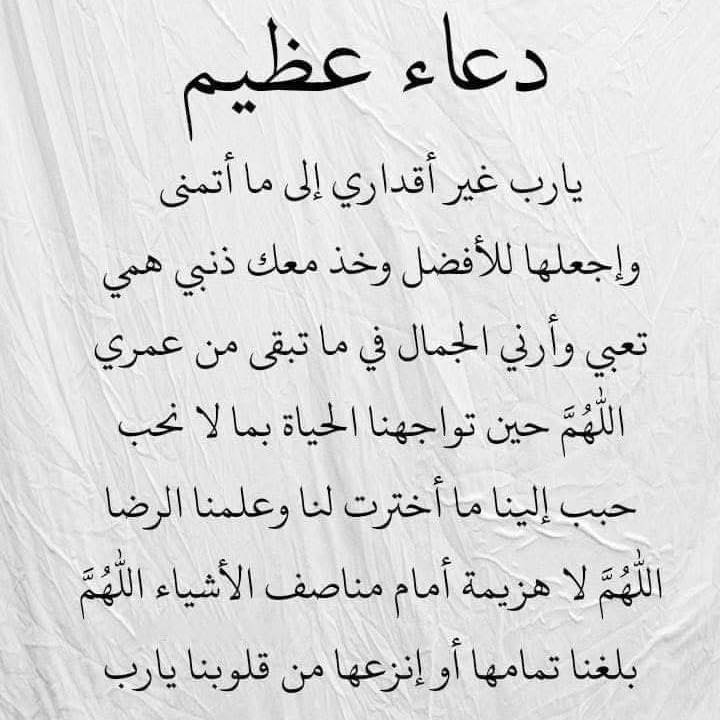 دعاء عظيم
يارب غير أقداري إلى ما أتمنى
وإجعلها للأفضل وخذ معك ذنبي همي
تعبي وأرني الجمال في ما تبقى من عمري
اللَّهُمَّ حين تواجهنا الحياة بما لا نحب
حبب إلينا ما أخترت لنا وعلمنا الرضا
اللَّهُمَّ لا هزيمة أمام مناصف الأشياء اللَّهُمَّ
بلغنا تمامها أو إنزعها من قلوبنا يارب